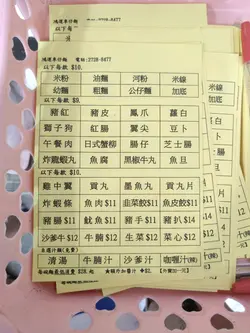 鴻運車仔麵 電話:2728-8477
以下每款 $10.
米粉 油麵 河粉 米線
幼麵 粗麵 公仔麵 加底
以下每款 $9.
豬紅 豬皮 鳳爪 蘿白
獅子狗 紅腸 翼尖 豆卜
午餐肉 日式蟹柳 腸仔 芝士腸
炸龍蝦丸 魚腐 黑椒牛丸 魚旦
以下每款 $10.
雞中翼 貢丸 墨魚丸 貢丸片
炸蝦條 魚肉 $11 韭菜餃 $11 魚皮餃 $11
豬腸 $11 魷魚 $11 豬手 $11 豬扒 $14
沙爹牛 $12 牛腩 $12 生菜 $12 菜心 $12
清湯 牛腩汁 沙爹汁 咖喱汁(辣)